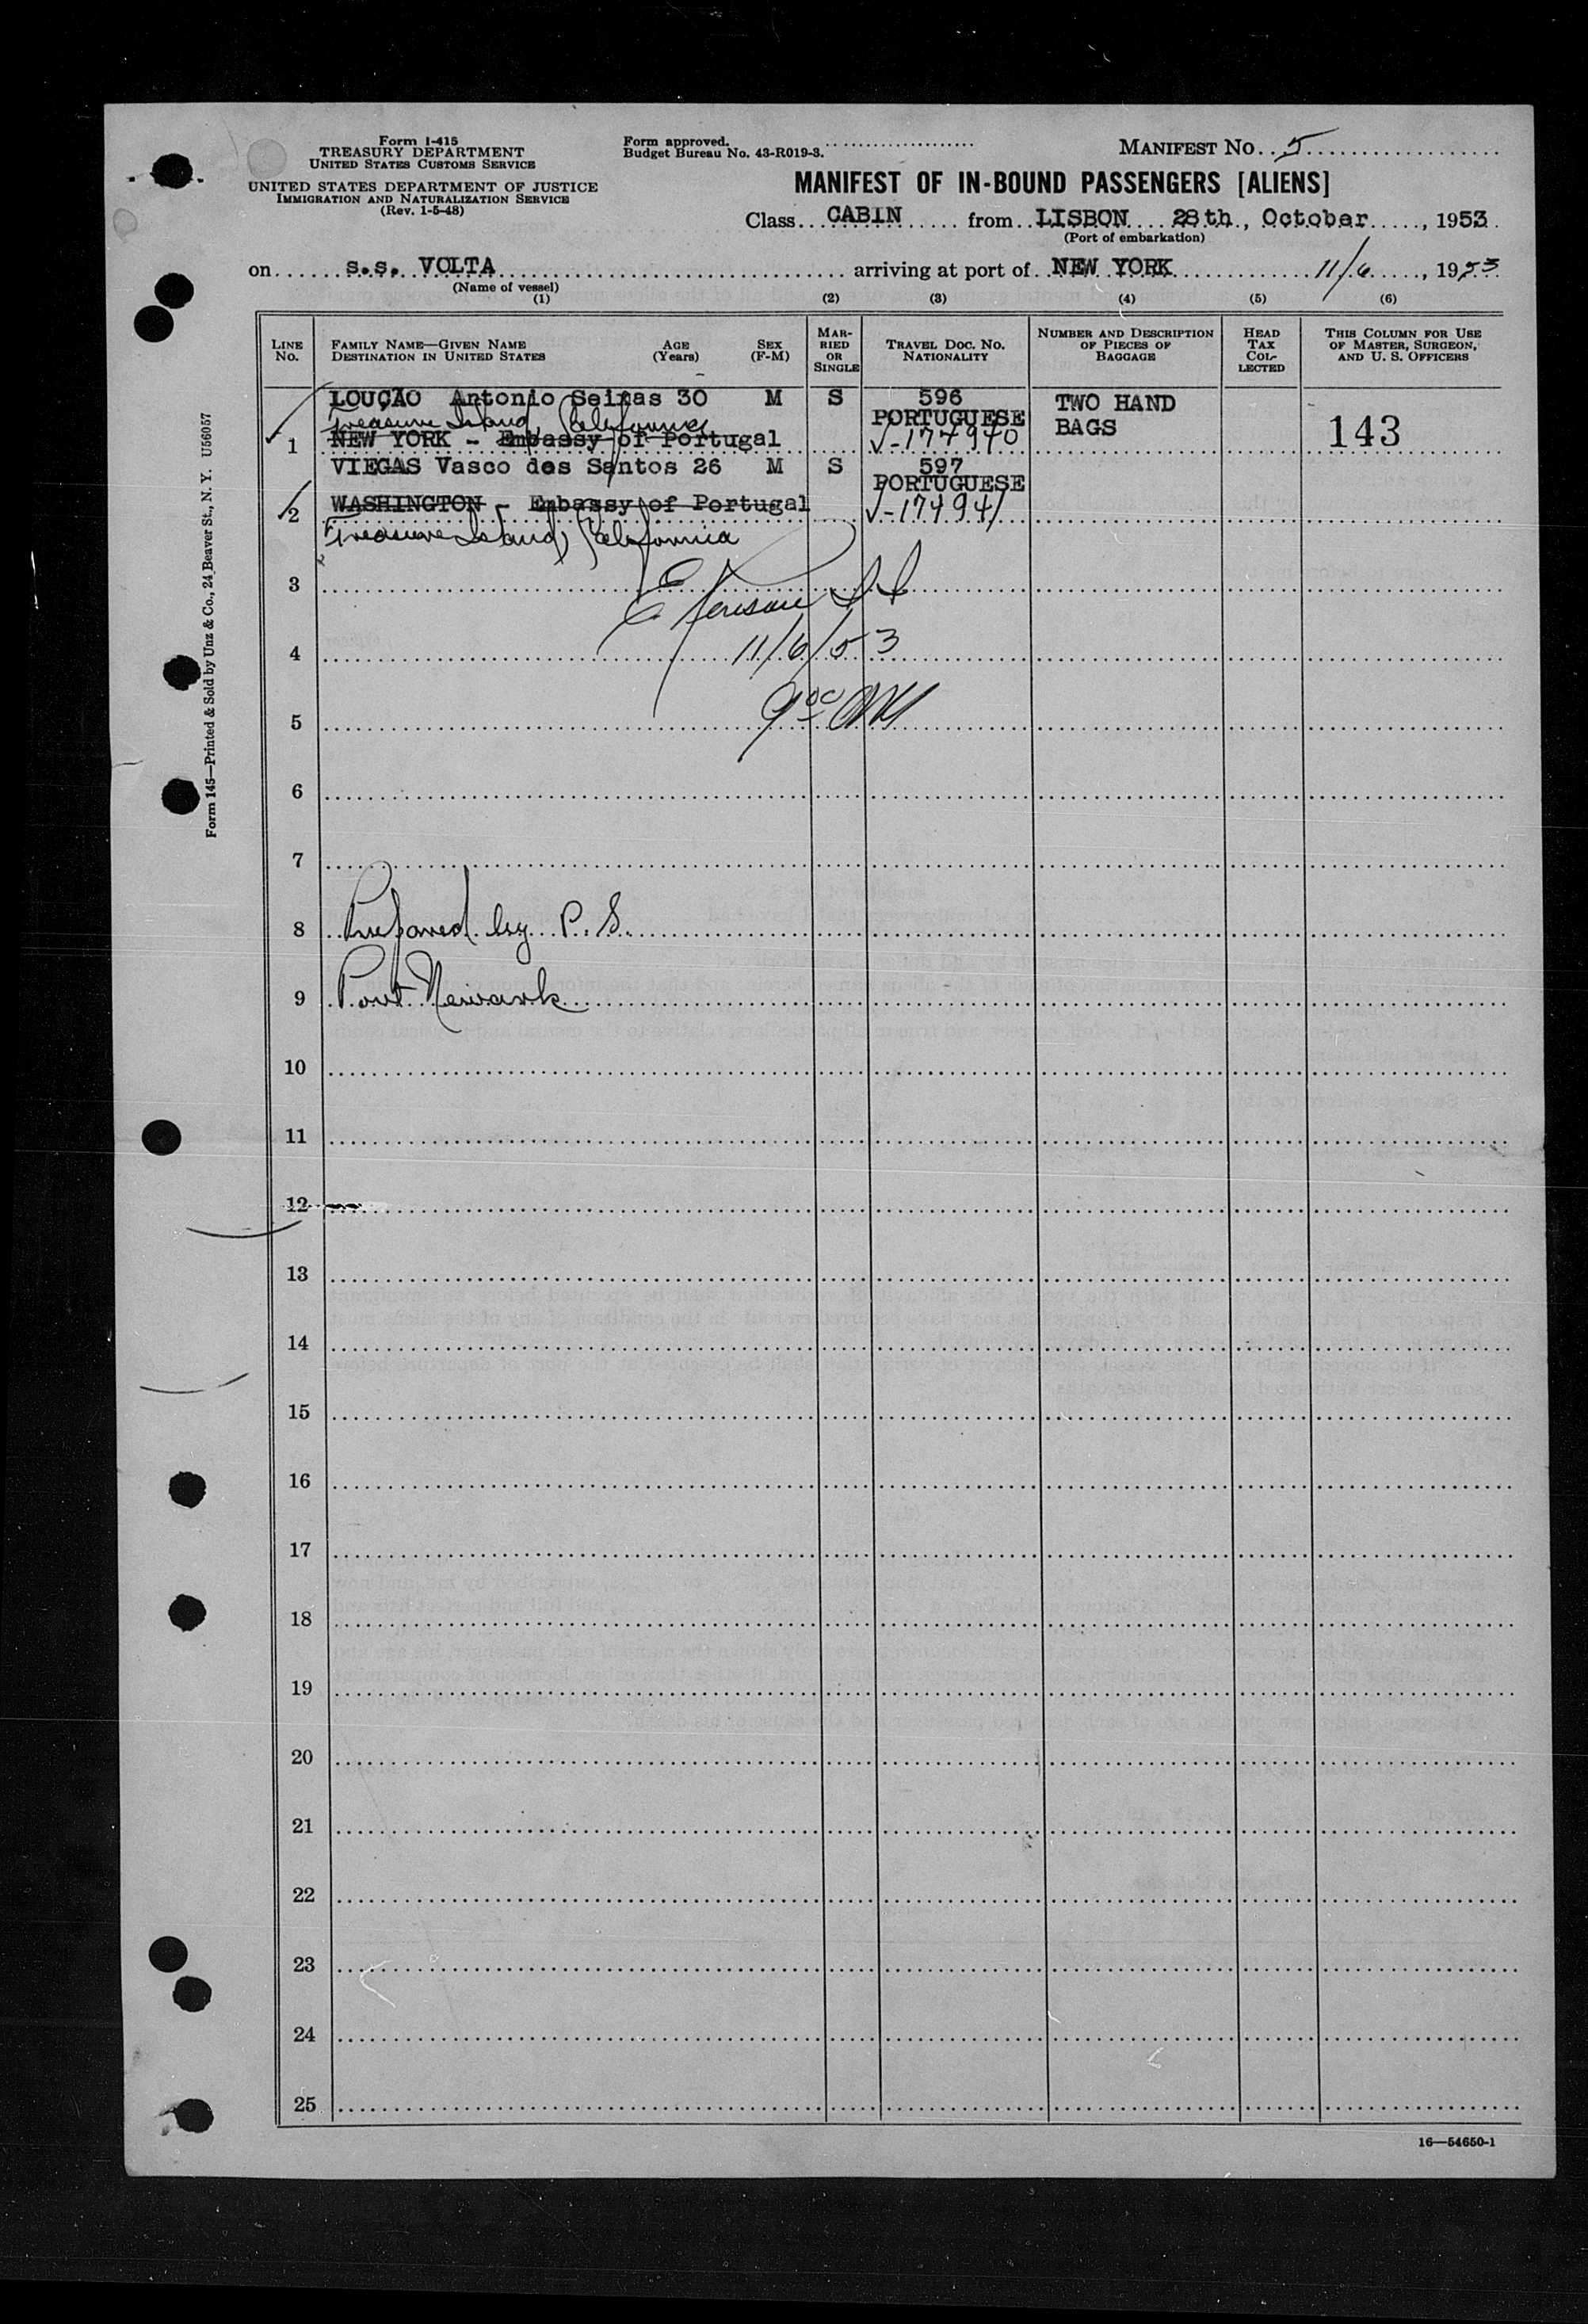 Form I-415
TREASURY DEPARTMENT
UNITED STATES CUSTOMS SERVICE
UNITED STATES DEPARTMENT OF JUSTICE
IMMIGRATION AND NATURALIZATION SERVICE
(Rev. 1-5-48)
Form approved.
Budget Bureau No. 43-R019-3.
MANIFEST No. 5
MANIFEST OF IN-BOUND PASSENGERS [ALIENS]
Class CABIN from LISBON 28th, October, 1953
(Port of embarkation)
on s.s. VOLTA arriving at port of NEW YORK 11/6, 1953
(Name of vessel)
(1) (2) (3) (4) (5) (6)
LINE No. FAMILY NAME—GIVEN NAME DESTINATION IN UNITED STATES AGE (Years) SEX (F-M) MARRIED OR SINGLE TRAVEL DOC. NO. NATIONALITY NUMBER AND DESCRIPTION OF PIECES OF BAGGAGE HEAD TAX COLLECTED THIS COLUMN FOR USE OF MASTER, SURGEON, AND U. S. OFFICERS
LOUÇÃO Antonio Seixas 30 M S 596 TWO HAND
Treasure Island, California PORTUGUESE BAGS
1 NEW YORK - Embassy of Portugal V-174940 143
VIEGAS Vasco dos Santos 26 M S 597
PORTUGUESE
2 WASHINGTON - Embassy of Portugal V-174941
Treasure Island, California
3
4 11/6/53
5 9 00 AM
6
7
8 Prepared by P. S.
9 Port Newark
10
11
12
13
14
15
16
17
18
19
20
21
22
23
24
25
16—54650-1
Form 145—Printed & Sold by Unz & Co., 24 Beaver St., N. Y. U56057